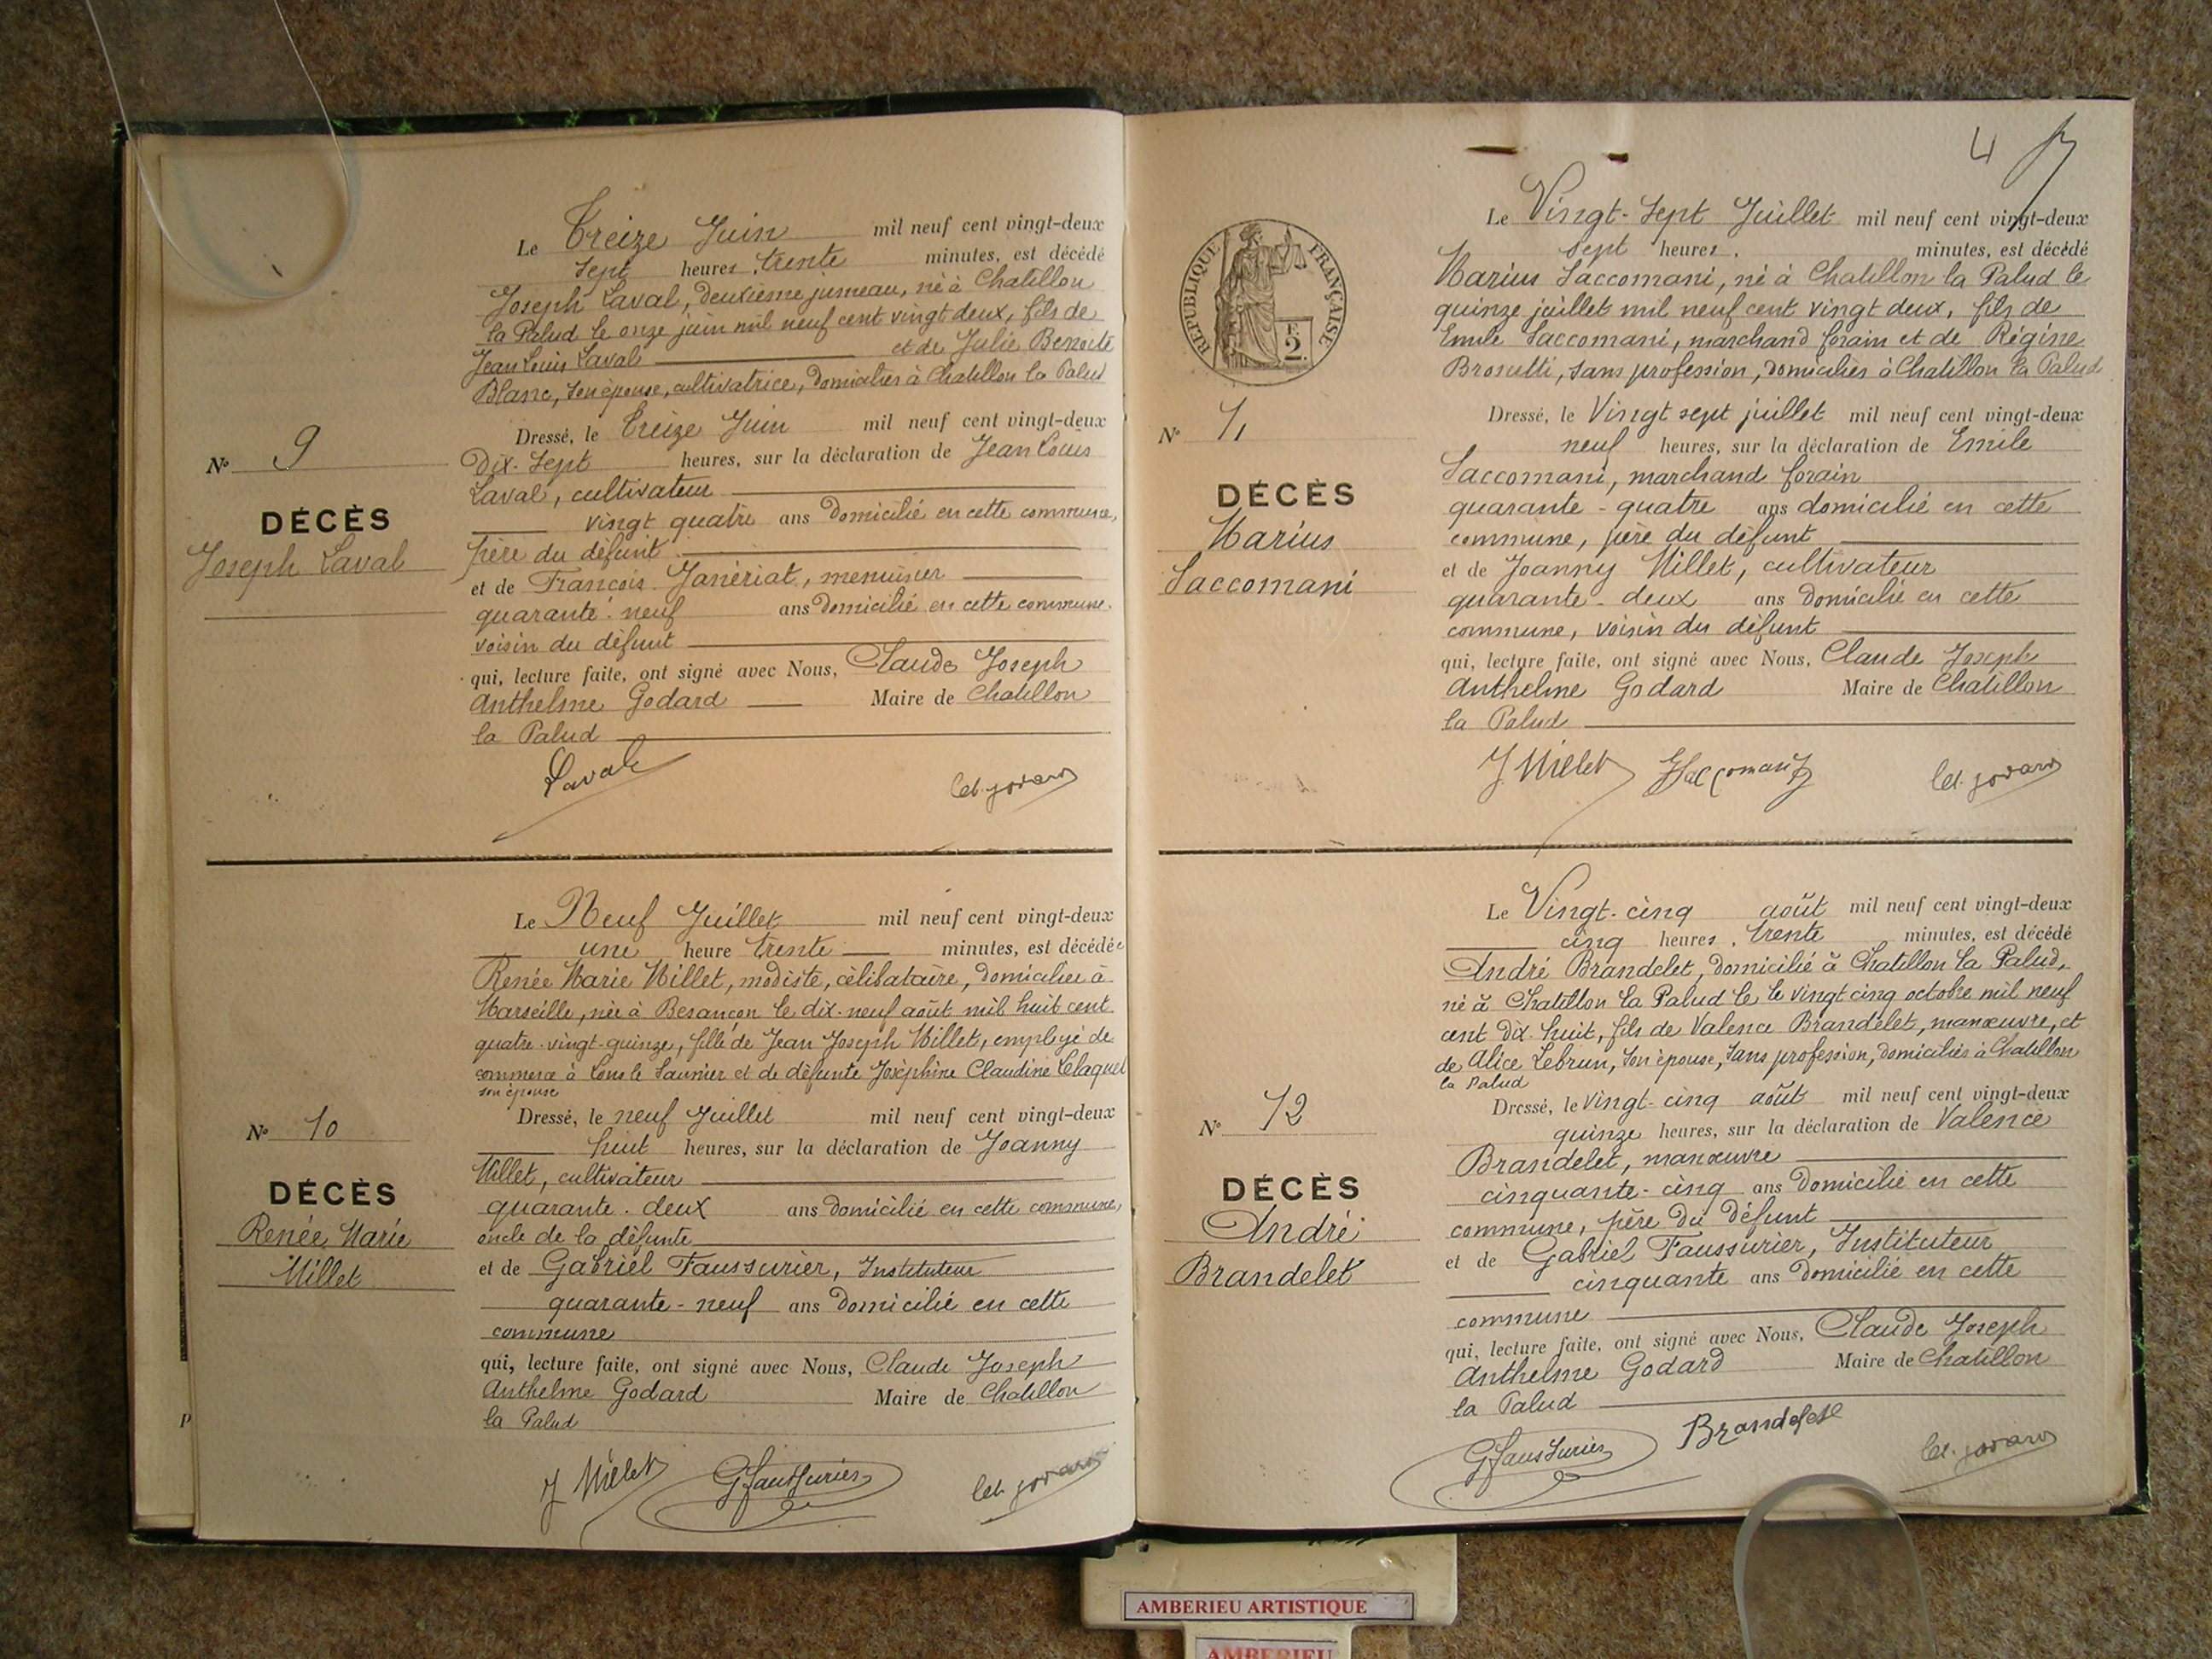 Le Treize Juin mil neuf cent vingt-deux
sept heures, trente minutes, est décédé
Joseph Laval, deuxième jumeau, né à Chatillon
la Palud le onze juin mil neuf cent vingt deux, fils de
Jean Louis Laval et de Julie Benoite
Blanc, son épouse, cultivatrice, domiciliés à Chatillon la Palud
Dressé, le Treize Juin mil neuf cent vingt-deux
Dix-sept heures, sur la déclaration de Jean Louis
Laval, cultivateur
vingt quatre ans domicilié en cette commune,
père du défunt
et de François Janériat, menuisier
quarante-neuf ans domicilié en cette commune,
voisin du défunt
qui, lecture faite, ont signé avec Nous, Claude Joseph
Anthelme Godard Maire de Chatillon
la Palud
Laval
N° 9
DÉCÈS
Joseph Laval
Le Neuf Juillet mil neuf cent vingt-deux
une heure trente minutes, est décédée
Renée Marie Millet, modiste, célibataire, domiciliée à
Marseille, née à Besançon le dix-neuf août mil huit cent
quatre-vingt-quinze, fille de Jean Joseph Millet, employé de
commerce à Lons le Saunier et de défunte Joséphine Claudine Claquel
son épouse
Dressé, le neuf Juillet mil neuf cent vingt-deux
huit heures, sur la déclaration de Joanny
Millet, cultivateur
quarante-deux ans domicilié en cette commune,
oncle de la défunte
et de Gabriel Faussurier, Instituteur
quarante-neuf ans domicilié en cette
commune
qui, lecture faite, ont signé avec Nous, Claude Joseph
Anthelme Godard Maire de Chatillon
la Palud
J Millet GFaussurier
N° 10
DÉCÈS
Renée Marie
Millet
P
4
Le Vingt-sept Juillet mil neuf cent vingt-deux
sept heures, minutes, est décédé
Marius Saccomani, né à Chatillon la Palud le
quinze juillet mil neuf cent vingt deux, fils de
Emile Saccomani, marchand forain et de Régine
Brosutti, sans profession, domiciliés à Chatillon la Palud
Dressé, le Vingt sept juillet mil neuf cent vingt-deux
neuf heures, sur la déclaration de Emile
Saccomani, marchand forain
quarante-quatre ans domicilié en cette
commune, père du défunt
et de Joanny Millet, cultivateur
quarante-deux ans domicilié en cette
commune, voisin du défunt
qui, lecture faite, ont signé avec Nous, Claude Joseph
Anthelme Godard Maire de Chatillon
la Palud
J Millet
RÉPUBLIQUE FRANÇAISE
N° 11
DÉCÈS
Marius
Saccomani
Le Vingt-cinq août mil neuf cent vingt-deux
cinq heures, trente minutes, est décédé
André Brandelet, domicilié à Chatillon la Palud,
né à Chatillon la Palud le le vingt cinq octobre mil neuf
cent dix-huit, fils de Valence Brandelet, manœuvre, et
de Alice Lebrun, son épouse, sans profession, domiciliés à Chatillon
la Palud
Dressé, le vingt-cinq août mil neuf cent vingt-deux
quinze heures, sur la déclaration de Valence
Brandelet, manœuvre
cinquante-cinq ans domicilié en cette
commune, père du défunt
et de Gabriel Faussurier, Instituteur
cinquante ans domicilié en cette
commune
qui, lecture faite, ont signé avec Nous, Claude Joseph
Anthelme Godard Maire de Chatillon
la Palud
GFaussurier Brandelet
N° 12
DÉCÈS
André
Brandelet
AMBERIEU ARTISTIQUE
AMBERIEU